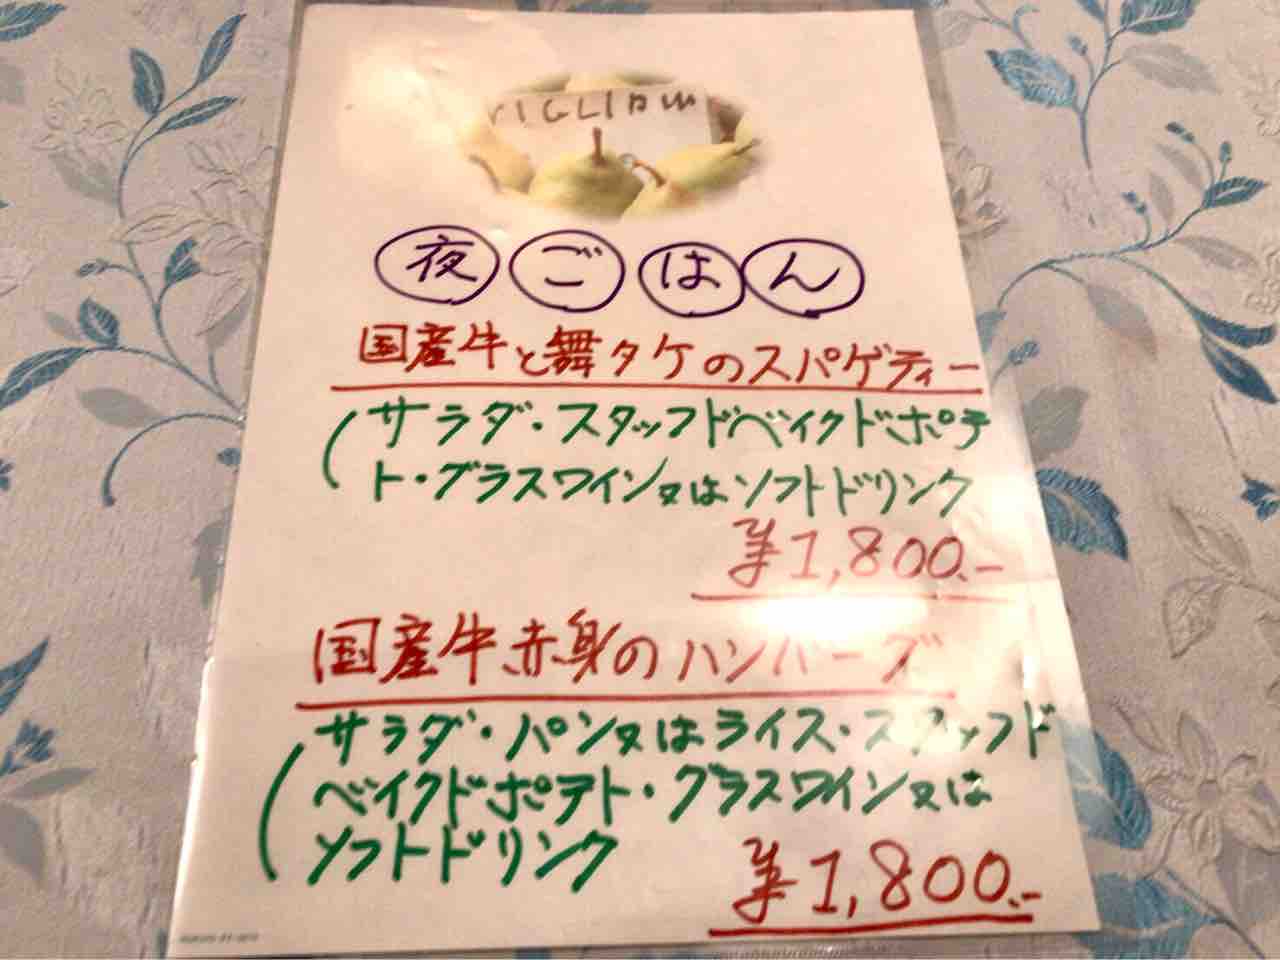 夜ごはん
国産牛と舞タケのスパゲティー
(サラダ・スタッフドベイクドポテ
ト・グラスワイン又はソフトドリンク
¥1,800.-
国産牛赤身のハンバーグ
(サラダ・パン又はライス・スタッフド
ベイクドポテト・グラスワイン又は
ソフトドリンク
¥1,800.-